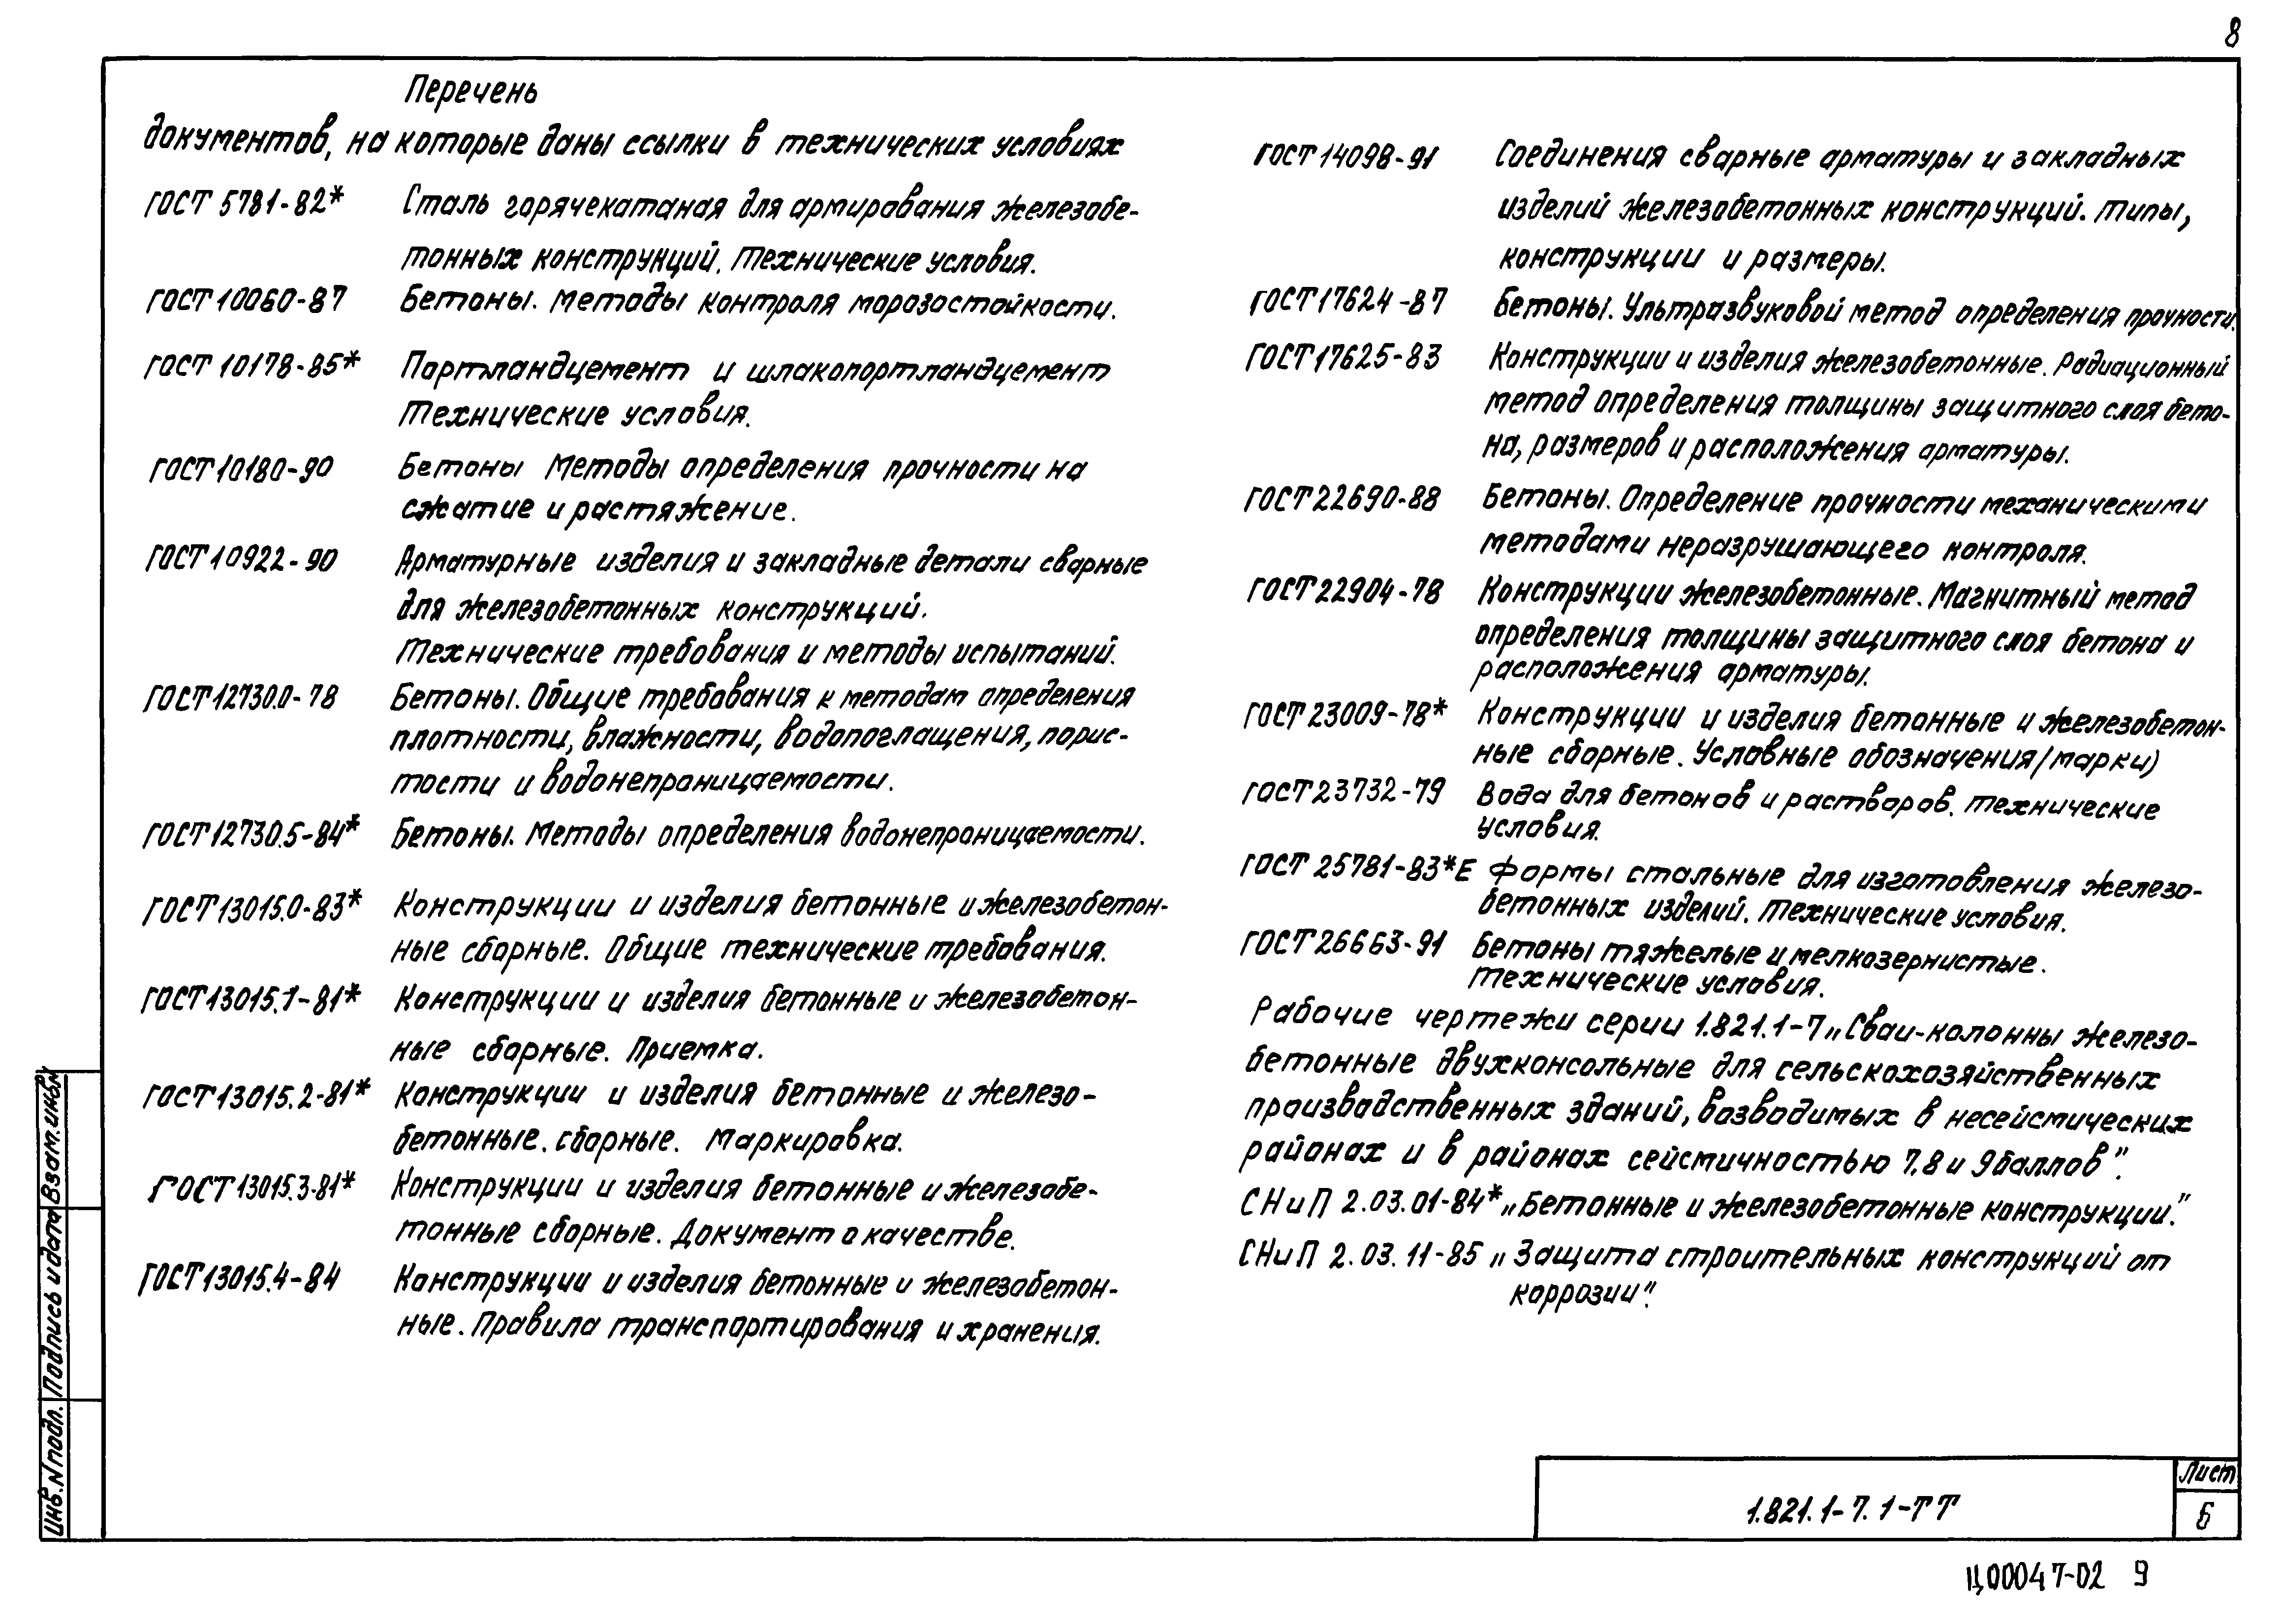 8
Перечень
документов, на которые даны ссылки в технических условиях
ГОСТ 5781-82* Сталь горячекатаная для армирования железобе-
тонных конструкций. Технические условия.
ГОСТ 10060-87 Бетоны. Методы контроля морозостойкости.
ГОСТ 10178-85* Портландцемент и шлакопортландцемент
Технические условия.
ГОСТ 10180-90 Бетоны Методы определения прочности на
сжатие и растяжение.
ГОСТ 10922-90 Арматурные изделия и закладные детали сварные
для железобетонных конструкций.
Технические требования и методы испытаний.
ГОСТ 12730.0-78 Бетоны. Общие требования к методам определения
плотности, влажности, водопоглащения, порис-
тости и водонепроницаемости.
ГОСТ 12730.5-84* Бетоны. Методы определения водонепроницаемости.
ГОСТ 13015.0-83* Конструкции и изделия бетонные и железобетон-
ные сборные. Общие технические требования.
ГОСТ 13015.1-81* Конструкции и изделия бетонные и железобетон-
ные сборные. Приемка.
ГОСТ 13015.2-81* Конструкции и изделия бетонные и железо-
бетонные. сборные. Маркировка.
ГОСТ 13015.3-81* Конструкции и изделия бетонные и железобе-
тонные сборные. Документ о качестве.
ГОСТ 13015.4-84 Конструкции и изделия бетонные и железобетон-
ные. Правила транспортирования и хранения.
ГОСТ 14098-91 Соединения сварные арматуры и закладных
изделий железобетонных конструкций. Типы,
конструкции и размеры.
ГОСТ 17624-87 Бетоны. Ультразвуковой метод определения прочности.
ГОСТ 17625-83 Конструкции и изделия железобетонные. Радиационный
метод определения толщины защитного слоя бето-
на, размеров и расположения арматуры.
ГОСТ 22690-88 Бетоны. Определение прочности механическими
методами неразрушающего контроля.
ГОСТ 22904-78 Конструкции железобетонные. Магнитный метод
определения толщины защитного слоя бетона и
расположения арматуры.
ГОСТ 23009-78* Конструкции и изделия бетонные и железобетон-
ные сборные. Условные обозначения (марки)
ГОСТ 23732-79 Вода для бетонов и растворов. Технические
условия.
ГОСТ 25781-83*Е Формы стальные для изготовления железо-
бетонных изделий. Технические условия.
ГОСТ 26663-91 Бетоны тяжелые и мелкозернистые.
Технические условия.
Рабочие чертежи серии 1.821.1-7 „Сваи-колонны железо-
бетонные двухконсольные для сельскохозяйственных
производственных зданий, возводимых в несейсмических
районах и в районах сейсмичностью 7,8 и 9 баллов".
СНиП 2.03.01-84* „Бетонные и железобетонные конструкции."
СНиП 2.03.11-85 „Защита строительных конструкций от
коррозии".
Инв. N подл. Подпись и дата Взам. инв. N
1.821.1-7.1-ТТ
Лист
6
Ц00047-02 9